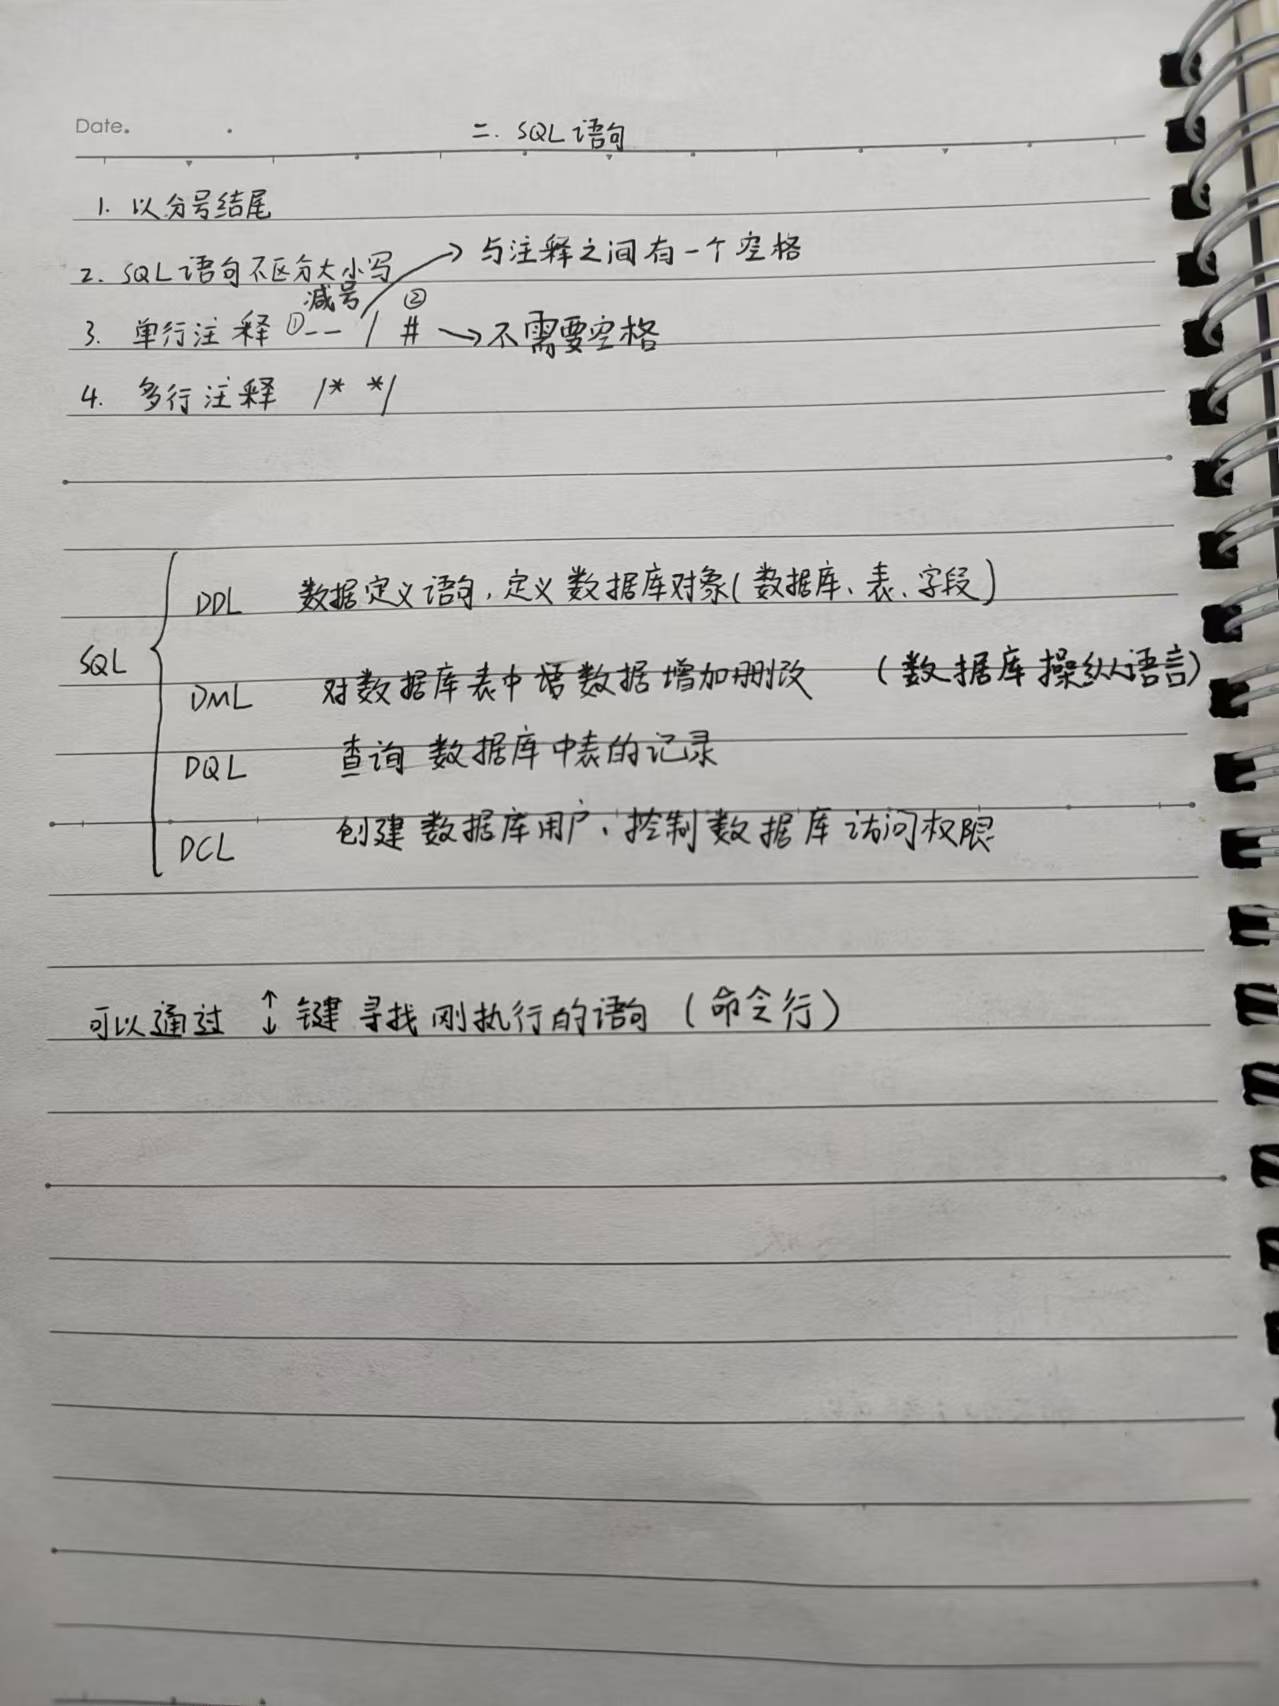 Date.
二. SQL 语句
1. 以分号结尾
2. SQL 语句不区分大小写
与注释之间有一个空格
减号
3. 单行注释 ①-- / ② # → 不需要空格
4. 多行注释 /* */
SQL
DDL 数据定义语句, 定义数据库对象(数据库、表、字段)
DML 对数据库表中 数据增加删改 (数据库操纵语言)
DQL 查询数据库中表的记录
DCL 创建数据库用户、控制数据库访问权限
可以通过 ↑↓ 键寻找刚执行的语句 (命令行)